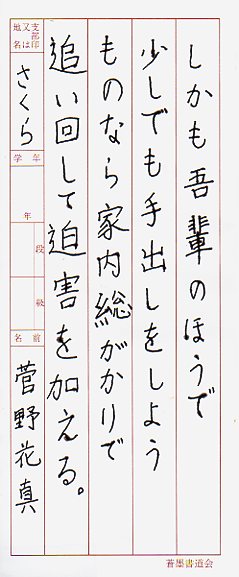 しかも吾輩のほうで
少しでも手出しをしよう
ものなら家内総がかりで
追い回して迫害を加える。
支部印
又は
地名
さくら
学年
年
段
級
名前
菅野花真
蒼墨書道会